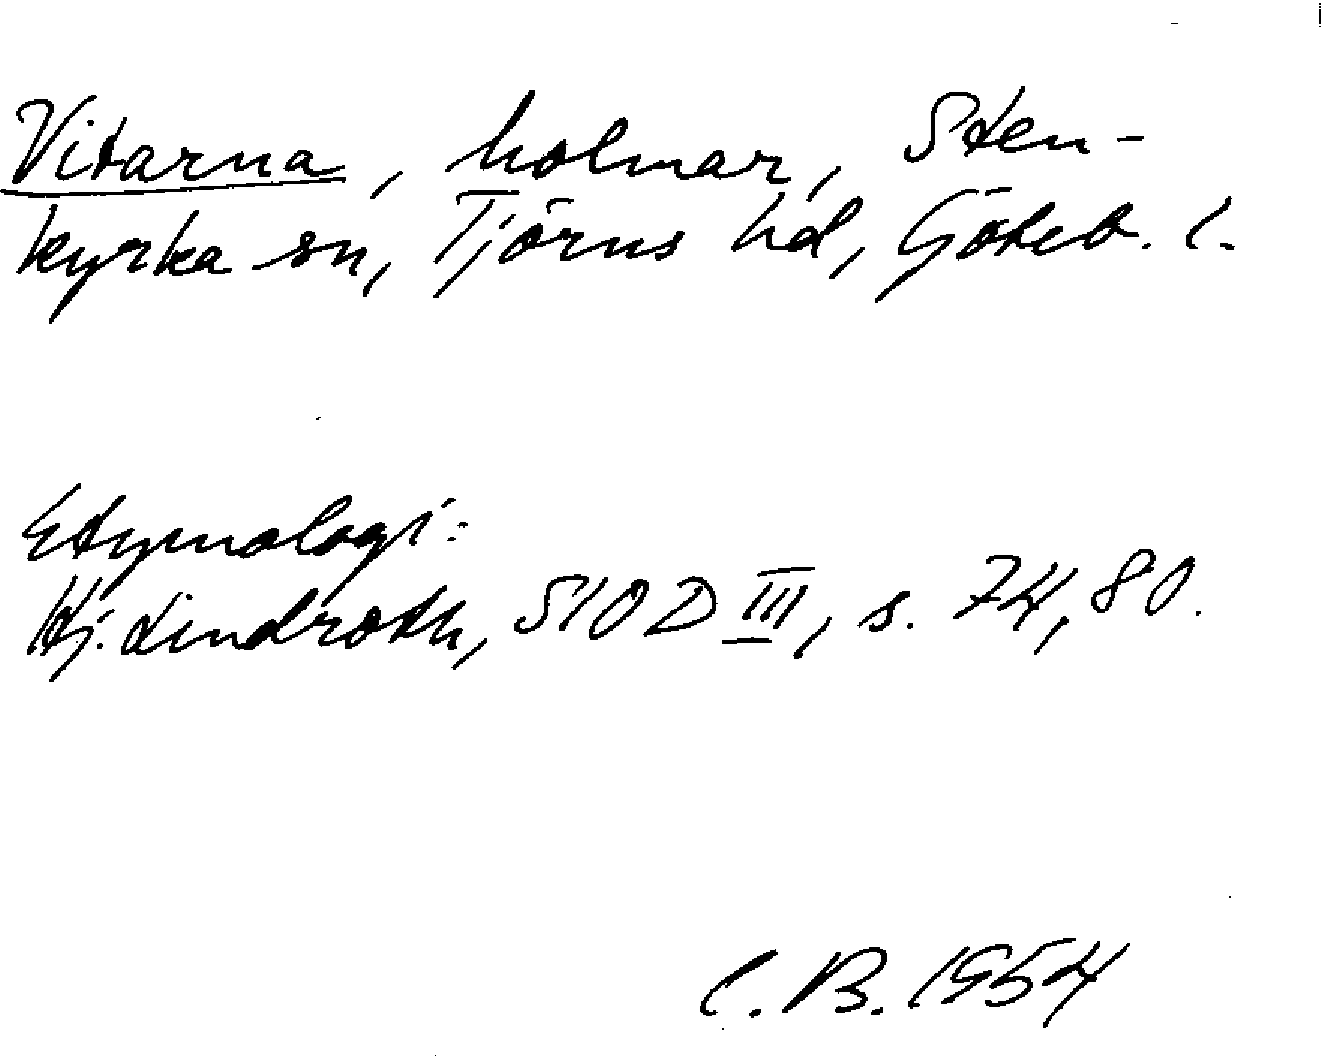 Vitarna, holmar, Sten-
kyrka sn, Tjörns hd, Göteb. l.
Etymologi:
Hj. Lindroth, SIOD III, s. 74, 80.
C. B. 1954